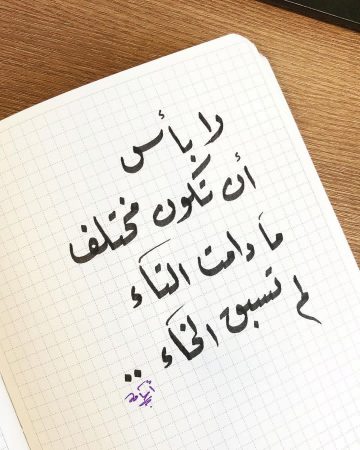 لا بأس
أن تكون مختلف
مَا دامت التاء
لم تسبق الخاء ..